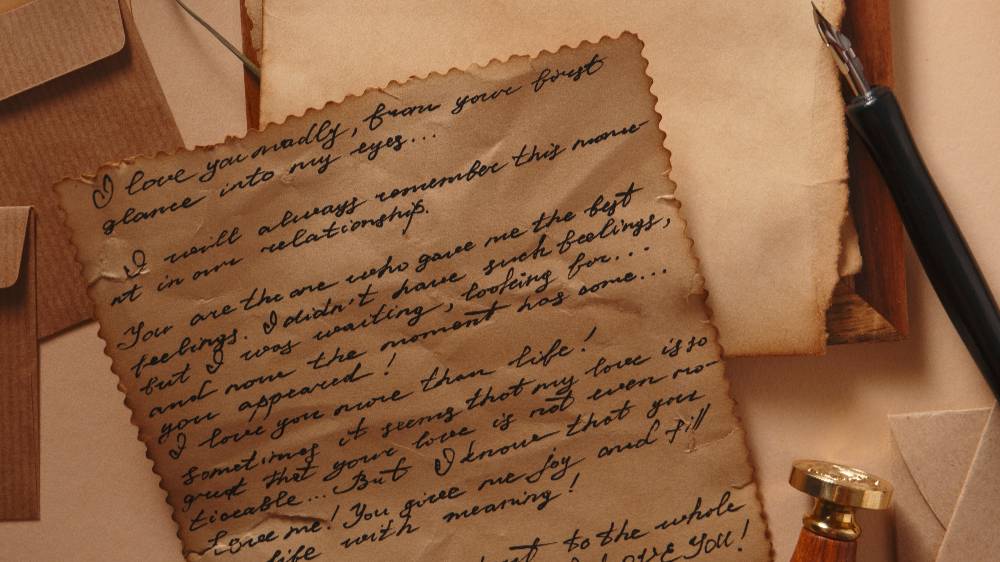 I love you madly, from your first
glance into my eyes...
I will always remember this mome-
nt in our relationship.
You are the one who gave me the best
feelings. I didn't have such feelings,
but I was waiting, looking for...
and now the moment has come...
you appeared!
I love you more than life!
sometimes it seems that my love is so
great that your love is not even no-
ticeable... But I know that you
Love me! You give me joy and fill
life with meaning!
to the whole
LOVE YOU!